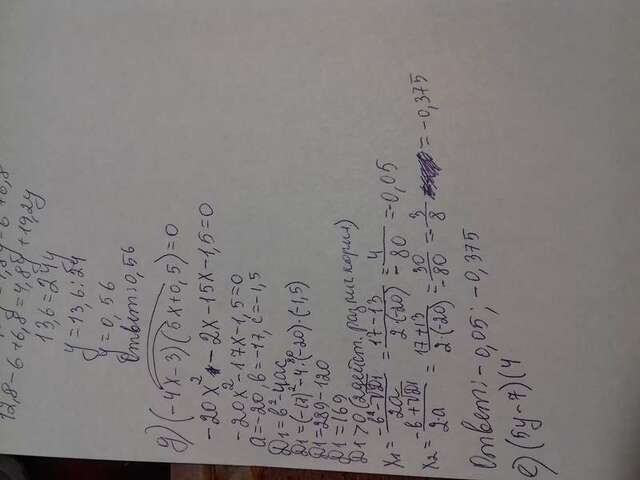 12,8-6+6,8=4,8y+19,2y
13,6=24y
y=13,6:24
y=0,56
Ответ:0,56
д) (-4x-3)(5x+0,5)=0
-20x²-2x-15x-1,5=0
-20x²-17x-1,5=0
a=-20, b=-17, c=-1,5
D1=b²-4ac
D1=(-17)²-4·(-20)·(-1,5)
D1=289-120
D1=169
D1>0 (2 дейст. различ корня)
x1=(-b²-√D1)/2a=(17-13)/2·(-20)=4/-80=-0,05
x2=(-b+√D1)/2·a=(17+13)/2·(-20)=30/-80=-3/8=-0,375
Ответ:-0,05; -0,375
е) (5y-7)(4